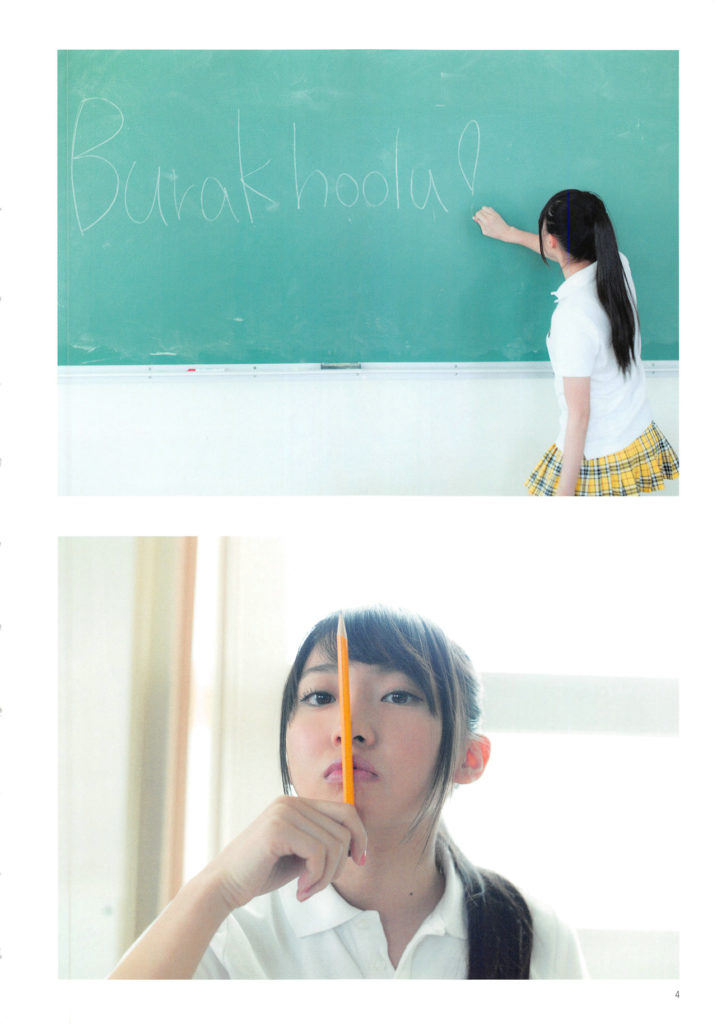 Burakhoola!
4